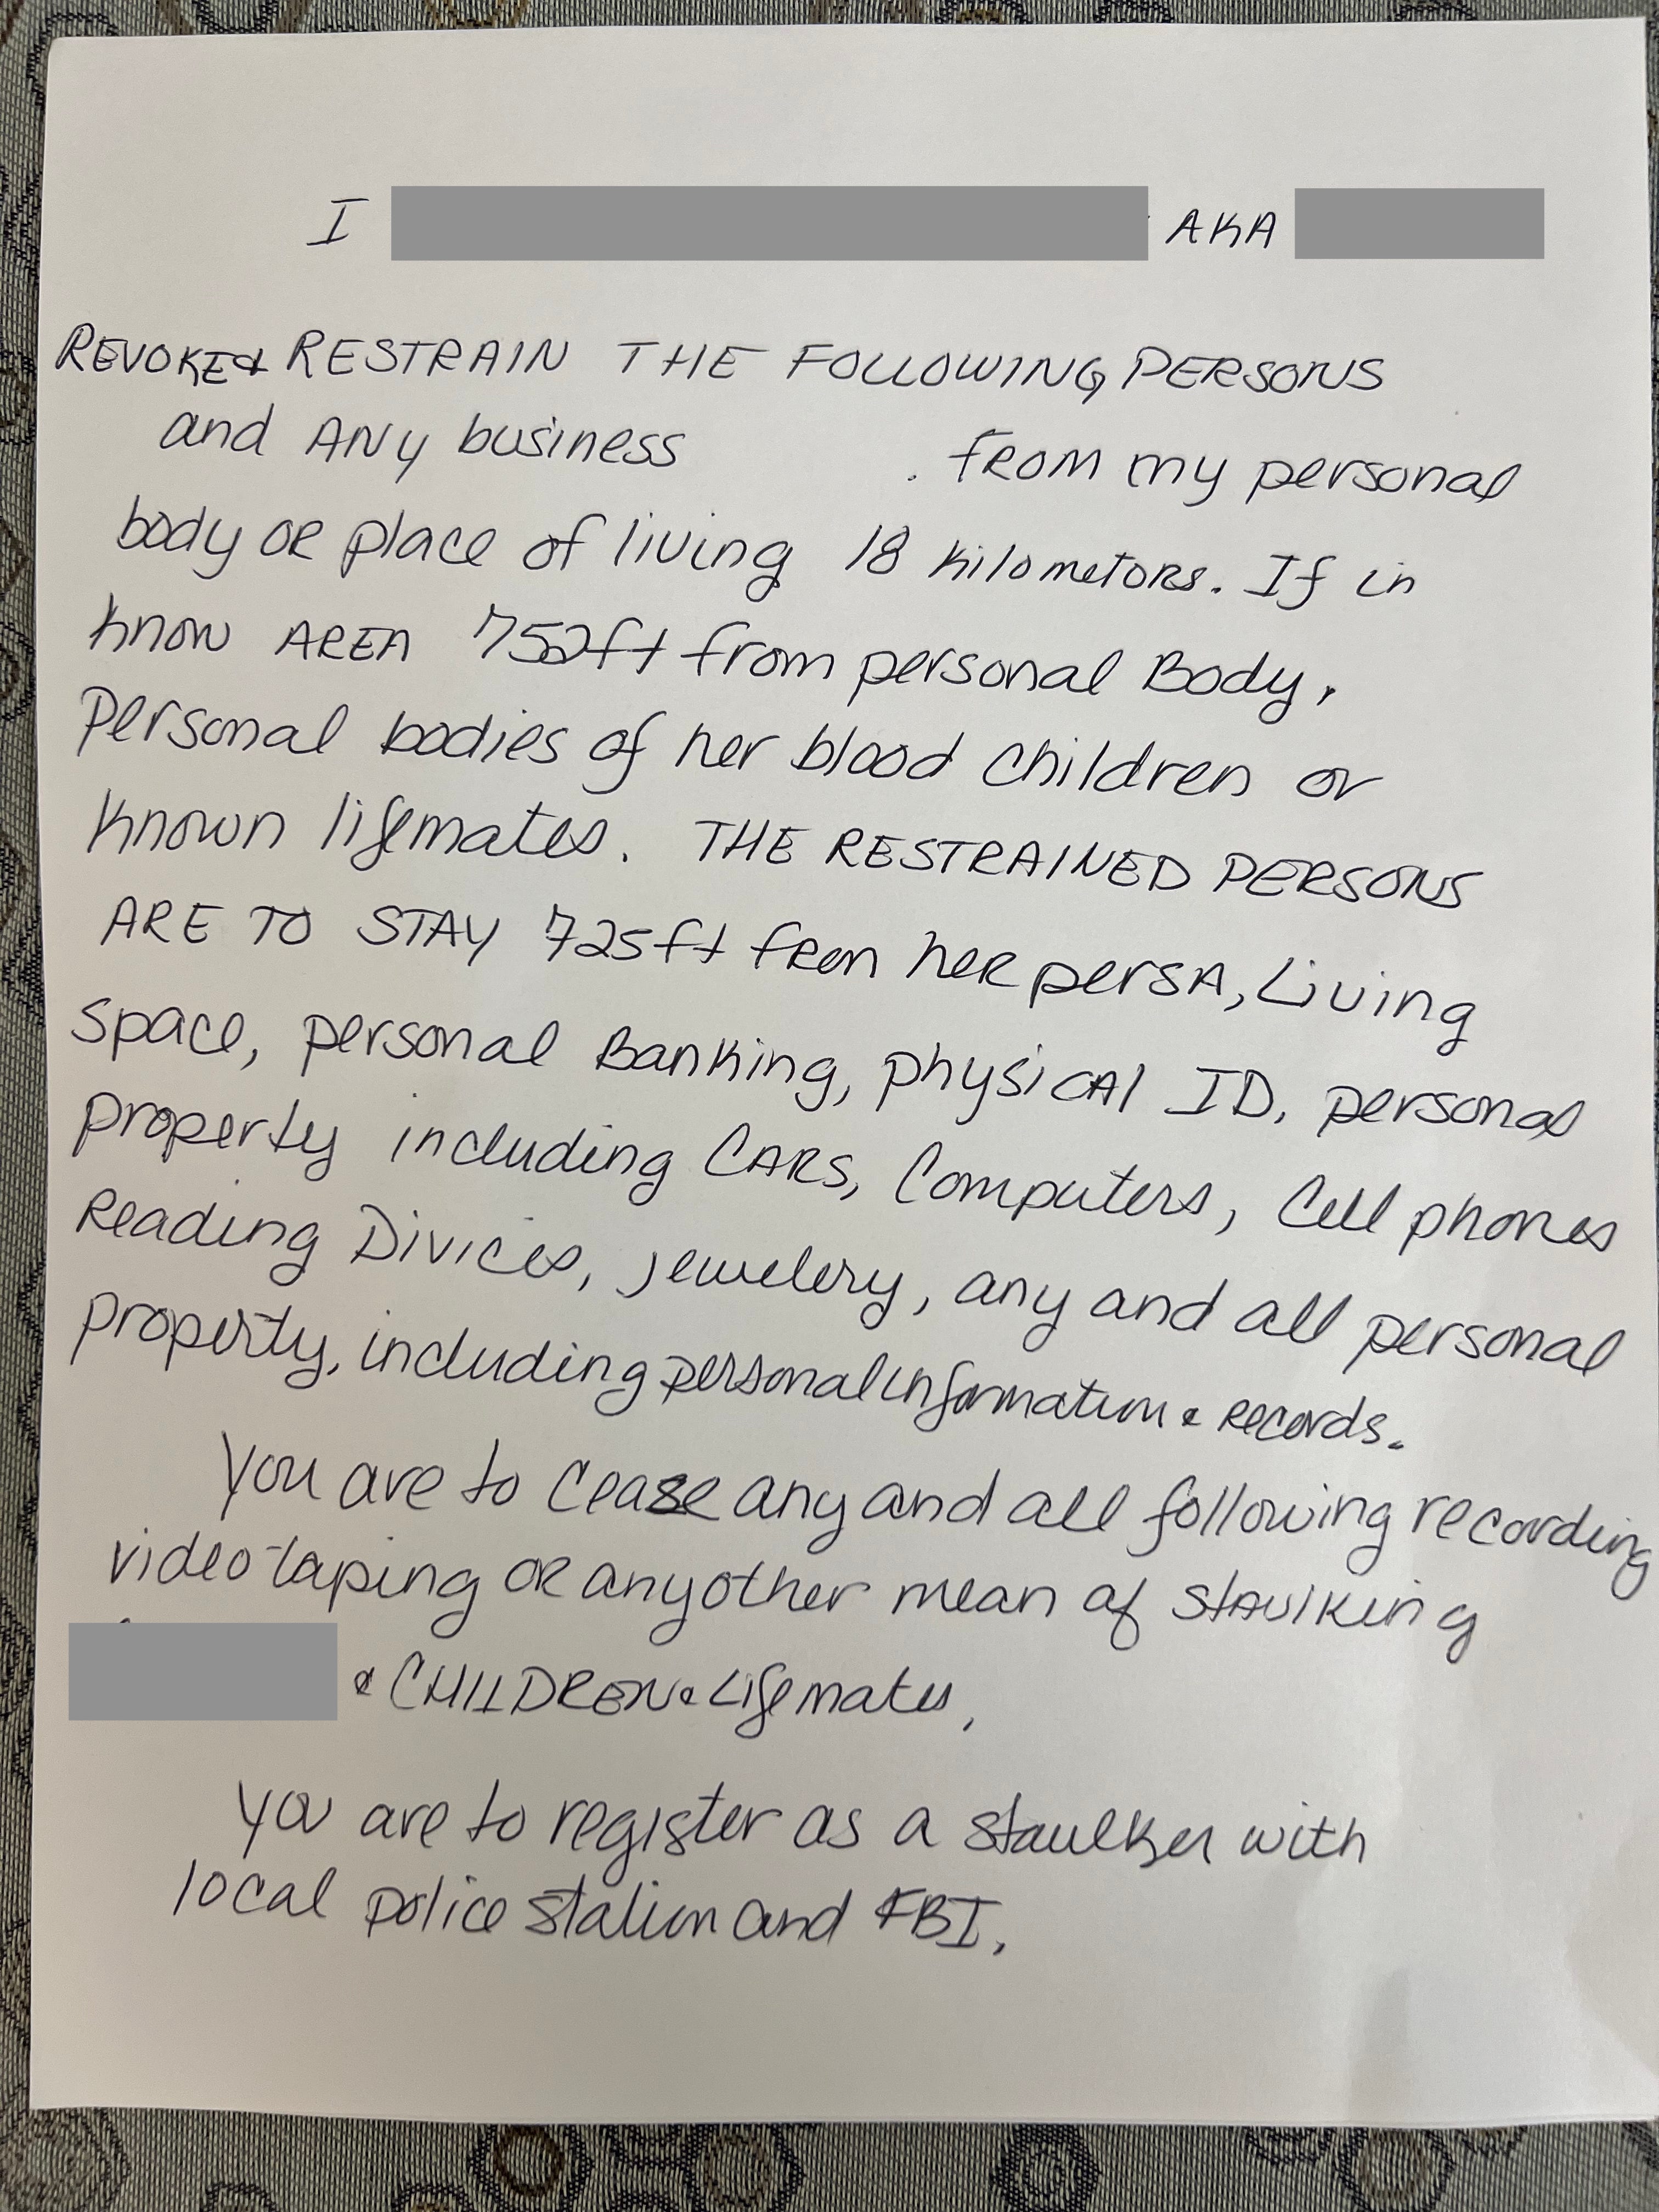 I AKA
REVOKE & RESTRAIN THE FOLLOWING PERSONS
and ANY business . from my personal
body or place of living 18 kilometors. If in
know AREA 752ft from personal Body,
personal bodies of her blood children or
known lifemates. THE RESTRAINED PERSONS
ARE TO STAY 725ft from her persn, Living
space, personal Banking, physical ID, personal
property including CARS, Computers, Cell phones
Reading Divices, jewelery, any and all personal
property, including personal information & records.
You are to cease any and all following recording
videotaping or any other mean of staulking
& CHILDREN & Lifemates,
you are to register as a staulker with
local police station and FBI.